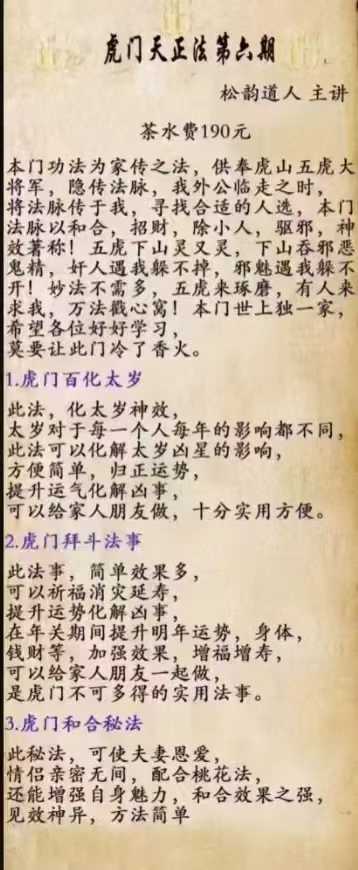 虎门天正法第六期
松韵道人 主讲
茶水费190元
本门功法为家传之法，供奉虎山五虎大
将军，隐传法脉，我外公临走之时，
将法脉传于我，寻找合适的人选，本门
法脉以和合，招财，除小人，驱邪，神
效著称！五虎下山灵又灵，下山吞邪恶
鬼精，奸人遇我躲不掉，邪魅遇我躲不
开！妙法不需多，五虎来琢磨，有人来
求我，万法戳心窝！本门世上独一家，
希望各位好好学习，
莫要让此门冷了香火。
1.虎门百化太岁
此法，化太岁神效，
太岁对于每一个人每年的影响都不同，
此法可以化解太岁凶星的影响，
方便简单，归正运势，
提升运气化解凶事，
可以给家人朋友做，十分实用方便。
2.虎门拜斗法事
此法事，简单效果多，
可以祈福消灾延寿，
提升运势化解凶事，
在年关期间提升明年运势，身体，
钱财等，加强效果，增福增寿，
可以给家人朋友一起做，
是虎门不可多得的实用法事。
3.虎门和合秘法
此秘法，可使夫妻恩爱，
情侣亲密无间，配合桃花法，
还能增强自身魅力，和合效果之强，
见效神异，方法简单